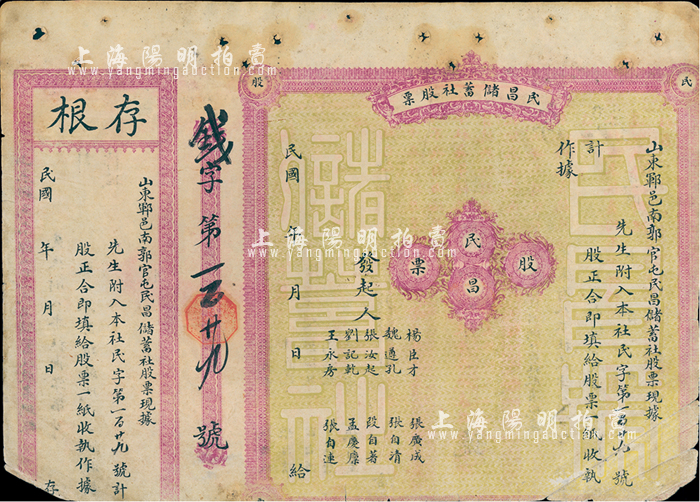 上海陽明拍賣
www.yangmingauction.com
民昌儲蓄社股票
股
民
山東鄆邑南郭官屯民昌儲蓄社股票現據
先生附入本社民字第一百廿九號
計
股正合即填給股票一紙收執
作據
民昌股票
發起人
楊臣才
魏道孔
張汝起
劉記乾
王永房
張廣成
張自清
段自著
孟慶廪
張自連
民國 年 月 日 給
錢字第一百廿九號
存根
山東鄆邑南郭官屯民昌儲蓄社股票現據
先生附入本社民字第一百廿九號計
股正合即填給股票一紙收執作據
民國 年 月 日 存
上海陽明拍賣
www.yangmingauction.com
上海陽明拍賣
www.yangmingauction.com
上海陽明拍賣
www.yangmingauction.com